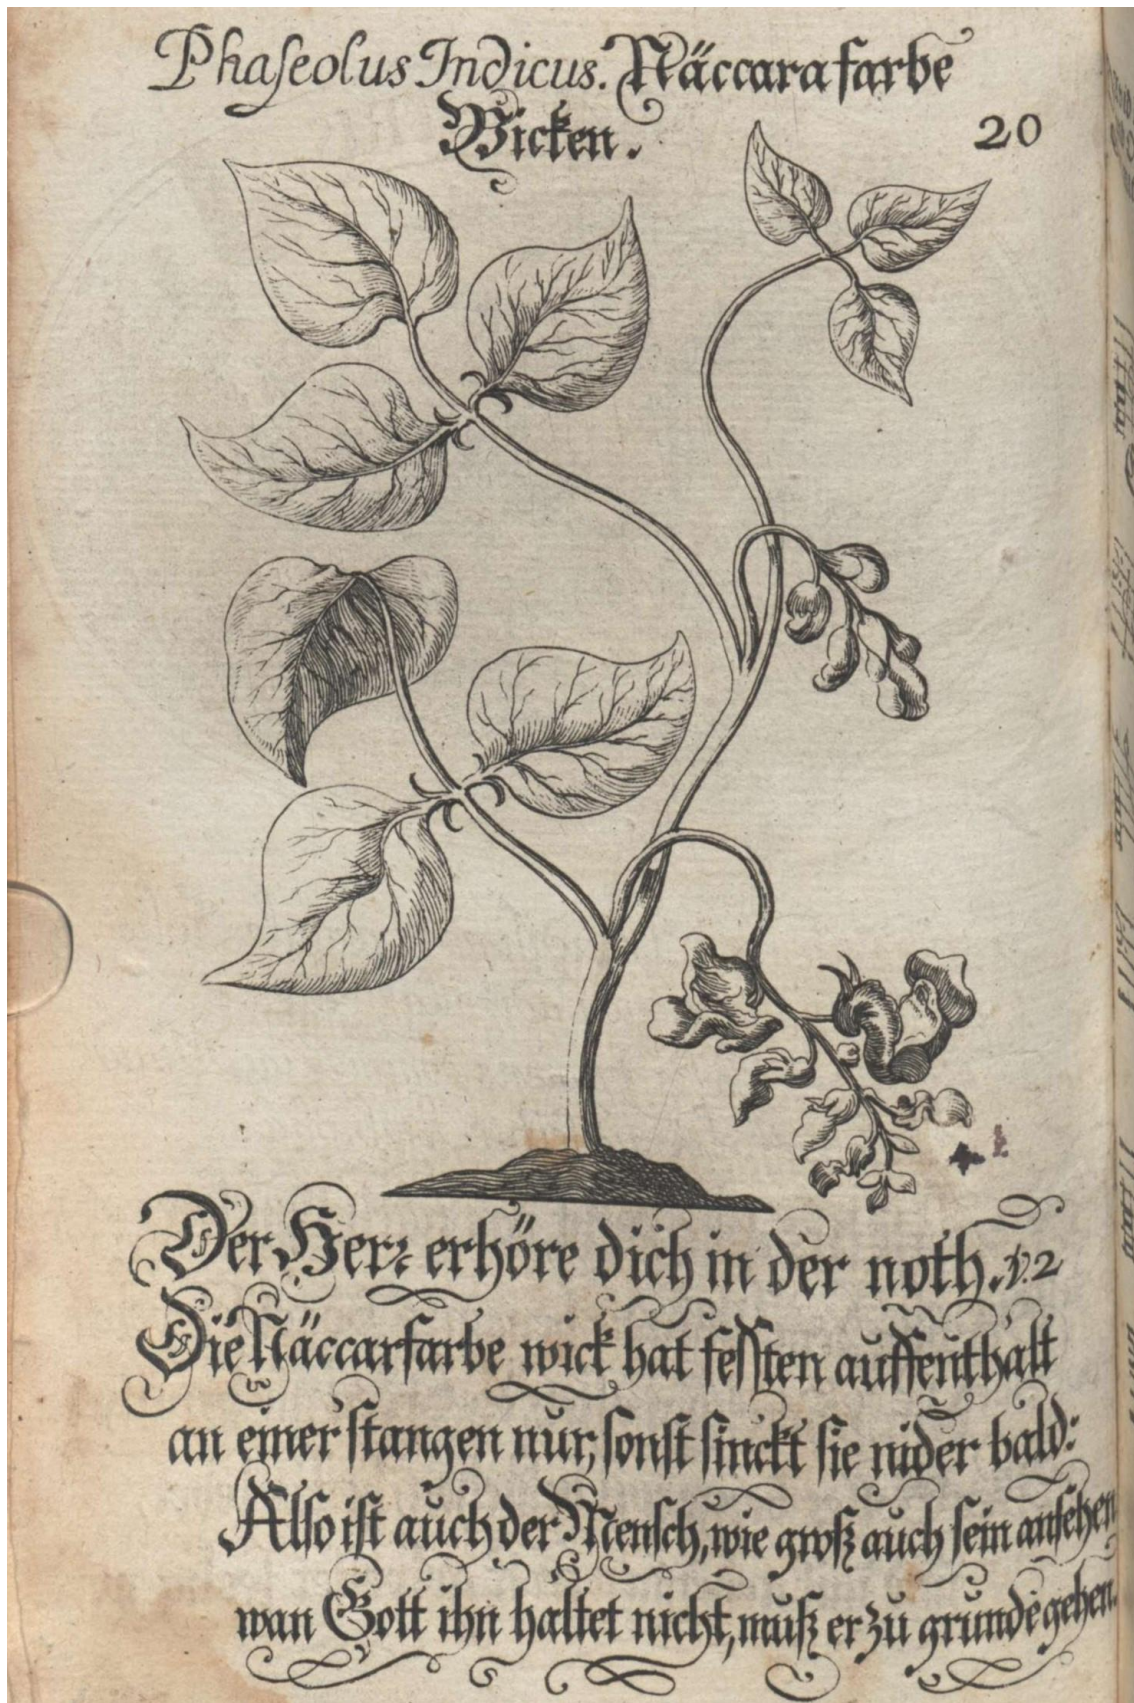 Phaſeolus Indicus. Näccarafarbe
Wicken.
20
Der Herꝛ erhöre dich in der noth. v. 2
Die Näccarfarbe wick hat feſſten auffenthalt
an einer ſtangen nur, ſonſt ſinckt ſie nider bald:
Alſo iſt auch der Menſch, wie groſz auch ſein anſehen,
wan Gott ihn haltet nicht, muſz er zu grunde gehen.